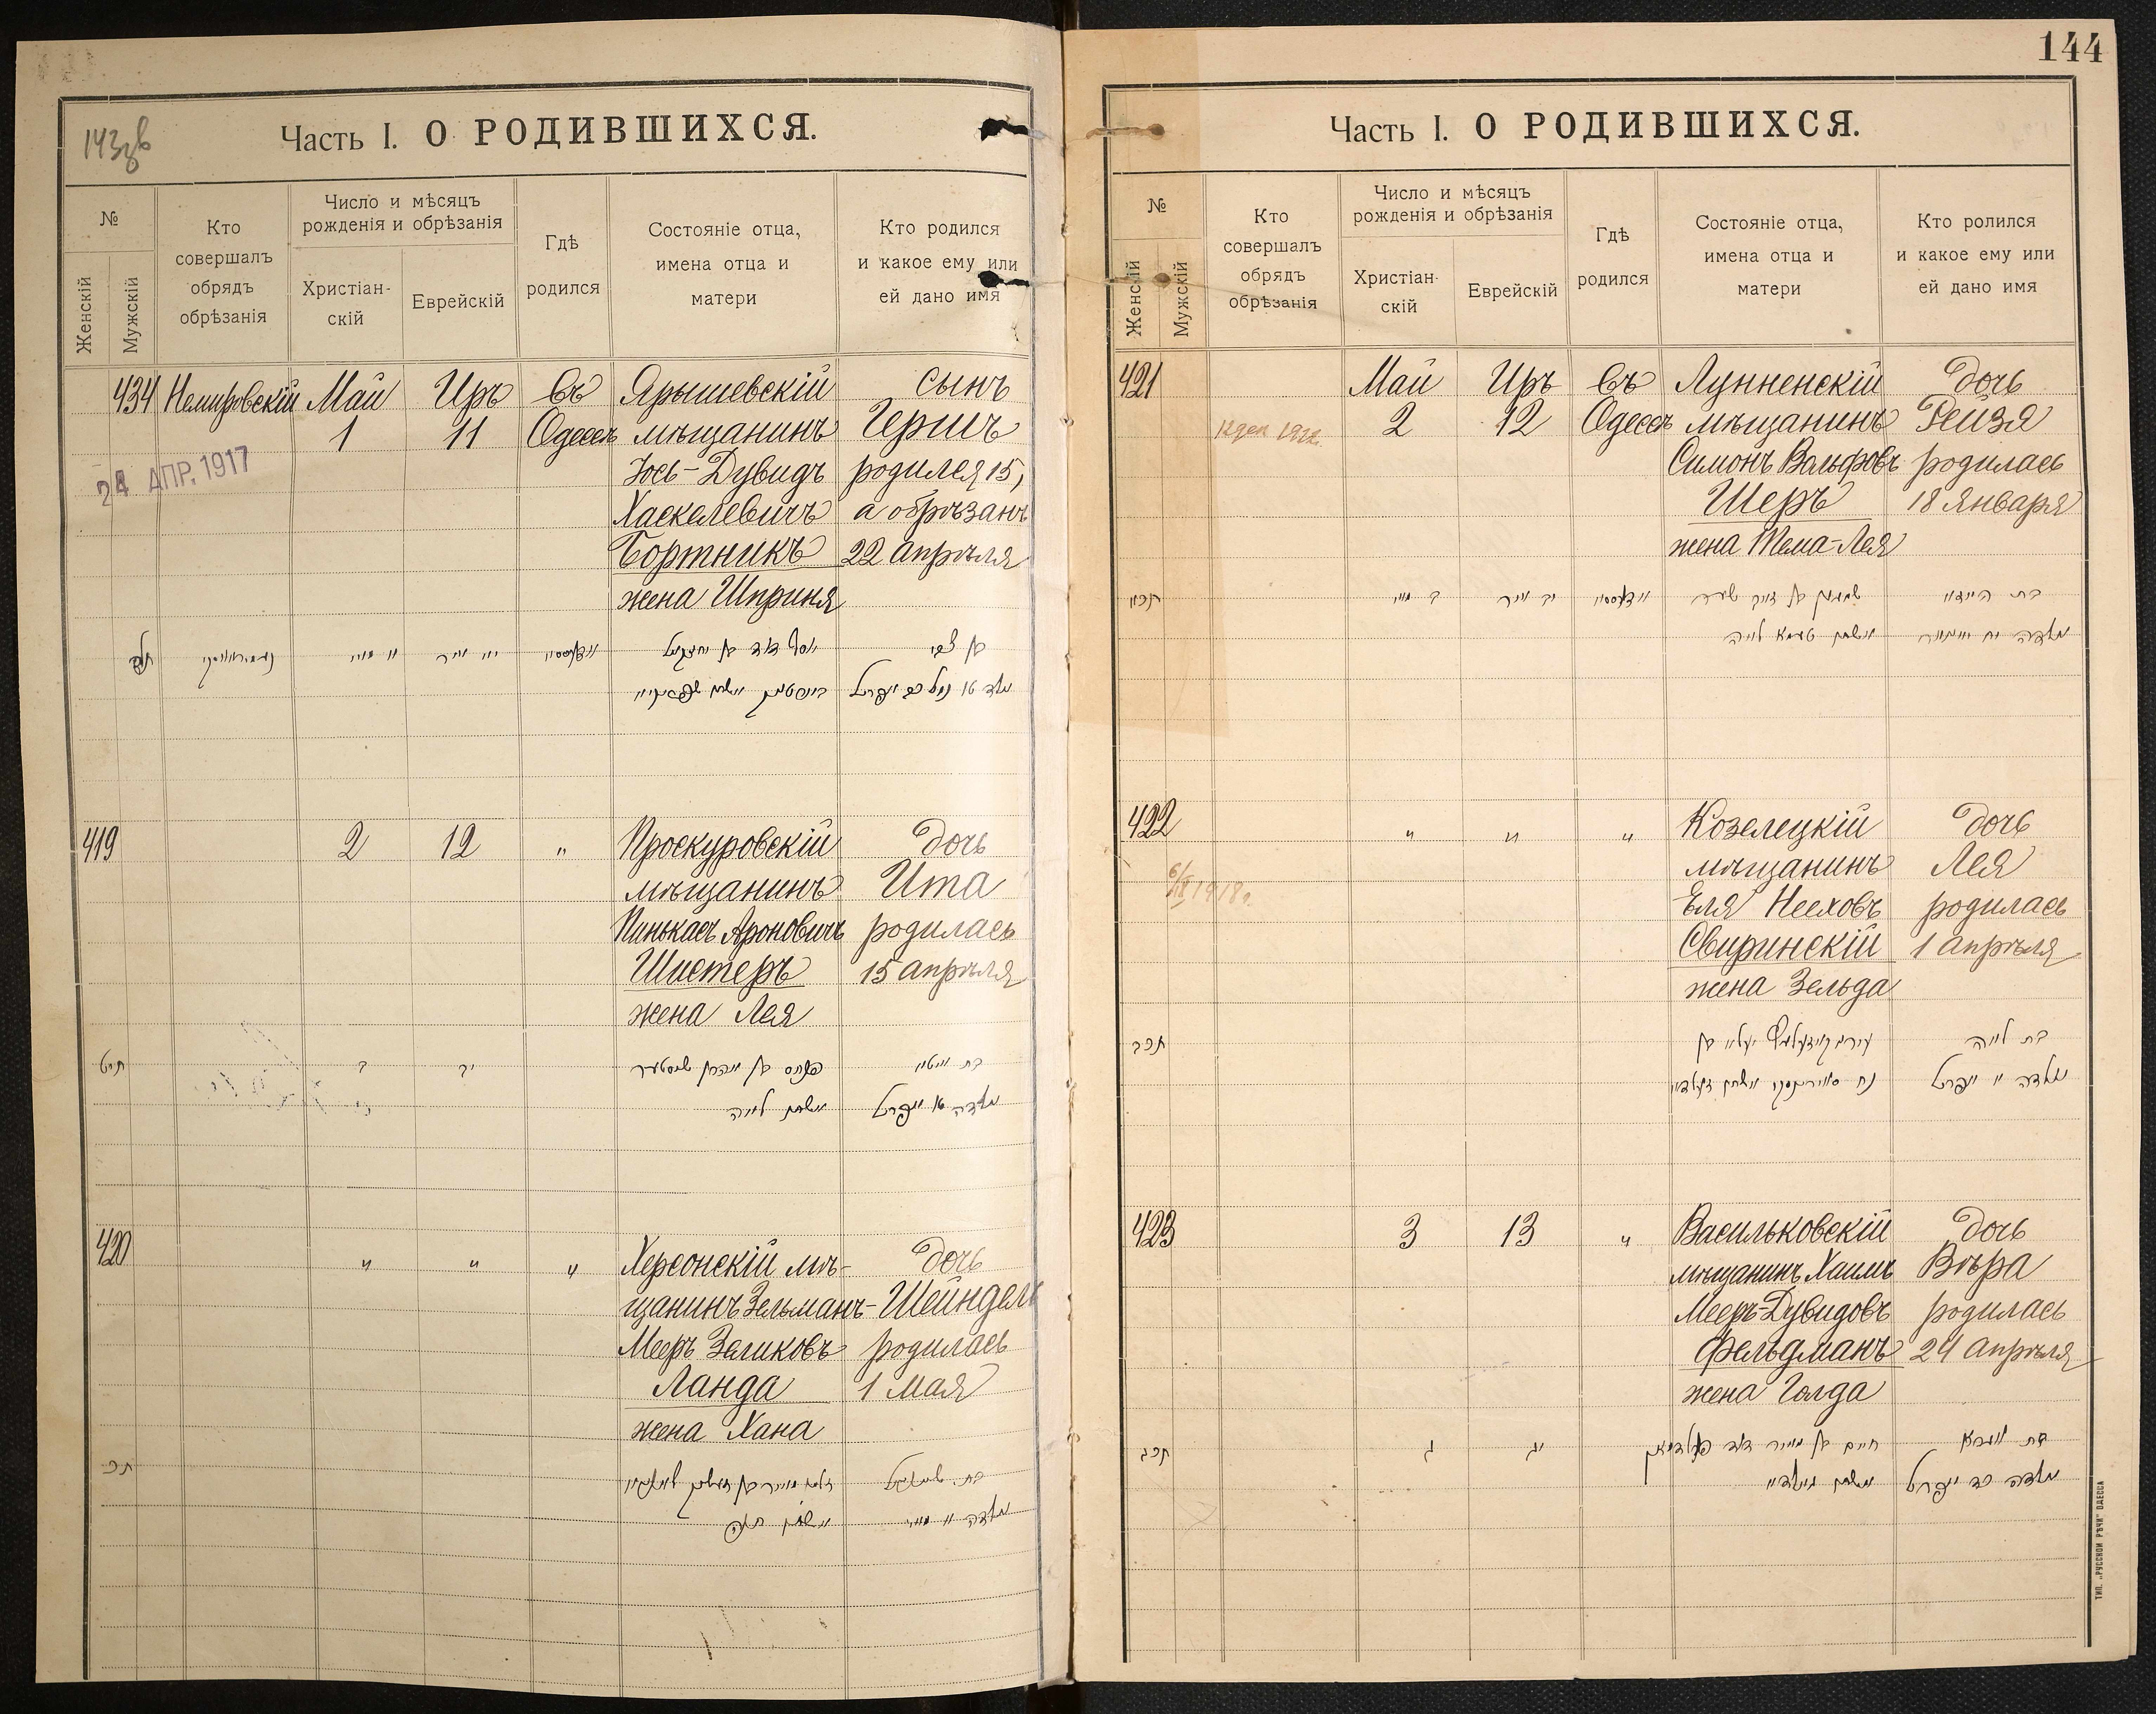 143зв
Часть I. О РОДИВШИХСЯ.
№
Женскій
Мужскій
Кто
совершалъ
обрядъ
обрѣзанія
Число и мѣсяцъ
рожденія и обрѣзанія
Христіан-
скій
Еврейскій
Гдѣ
родился
Состояніе отца,
имена отца и
матери
Кто родился
и какое ему или
ей дано имя
434 Немировскій Май Иръ въ Ярышевскій сынъ
1 11 Одессѣ мѣщанинъ Гершъ
24 АПР. 1917
Іось-Дувидъ родился 15,
Хаскелевичъ а обрѣзанъ
Бортникъ 22 апрѣля
жена Шприня
419 2 12 " Проскуровскій дочь
мѣщанинъ Ита
Пинькасъ Ароновичъ родилась
Шистеръ 15 апрѣля
жена Лея
תיט ב יב פנחס בן אהרן שיסטער
אשתו לאה
420 " " " Херсонскій мѣ- дочь
щанинъ Зельманъ- Шейндель
Мееръ Зеликовъ родилась
Ланда 1 Мая
жена Хана
תכ
144
Часть I. О РОДИВШИХСЯ.
№
Женскій
Мужскій
Кто
совершалъ
обрядъ
обрѣзанія
Число и мѣсяцъ
рожденія и обрѣзанія
Христіан-
скій
Еврейскій
Гдѣ
родился
Состояніе отца,
имена отца и
матери
Кто ролился
и какое ему или
ей дано имя
421 Май Иръ въ Лунненскій дочь
2 12 Одессѣ мѣщанинъ Рейзя
Симонъ Вольфовъ родилась
Шеръ 18 Января
жена Тема-Лея
422 " " " Козелецкій дочь
мѣщанинъ Лея
1918г.
Еля Несховъ родилась
Свиринскій 1 апрѣля
жена Зельда
תכב בת לאה
423 3 13 " Васильковскій дочь
мѣщанинъ Хаимъ Вѣра
Мееръ-Дувидовъ родилась
Фельдманъ 24 апрѣля
жена Голда
תכג ג יג חיים בן מאיר דוד פעלדמאן
ТИП. „РУССКОЙ РѢЧИ" ОДЕССА